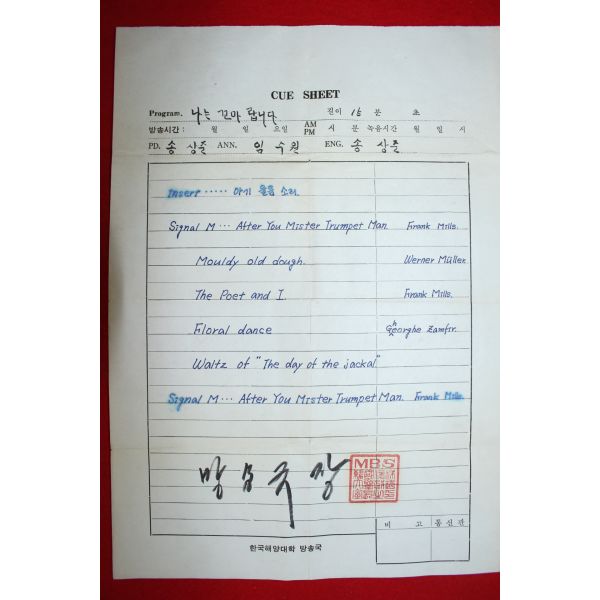 CUE SHEET
Program. 나는 꼬마 랍니다 길이 15 분 초
방송시간 : 월 일 요일 AM PM 시 분 녹음시간 월 일 시
PD. 송 상훈 ANN. 임 수원 ENG. 송 상훈
Insert ····· 아기 울음 소리
Signal M ··· After You Mister Trumpet Man. Frank Mills.
Mouldy old dough. Werner Müller.
The Poet and I. Frank Mills.
Floral dance Gheorghe Zamfir.
Waltz of "The day of the jackal"
Signal M ··· After You Mister Trumpet Man. Frank Mills.
방 송 국 장 MBS
비 고 통신관
한국해양대학 방송국